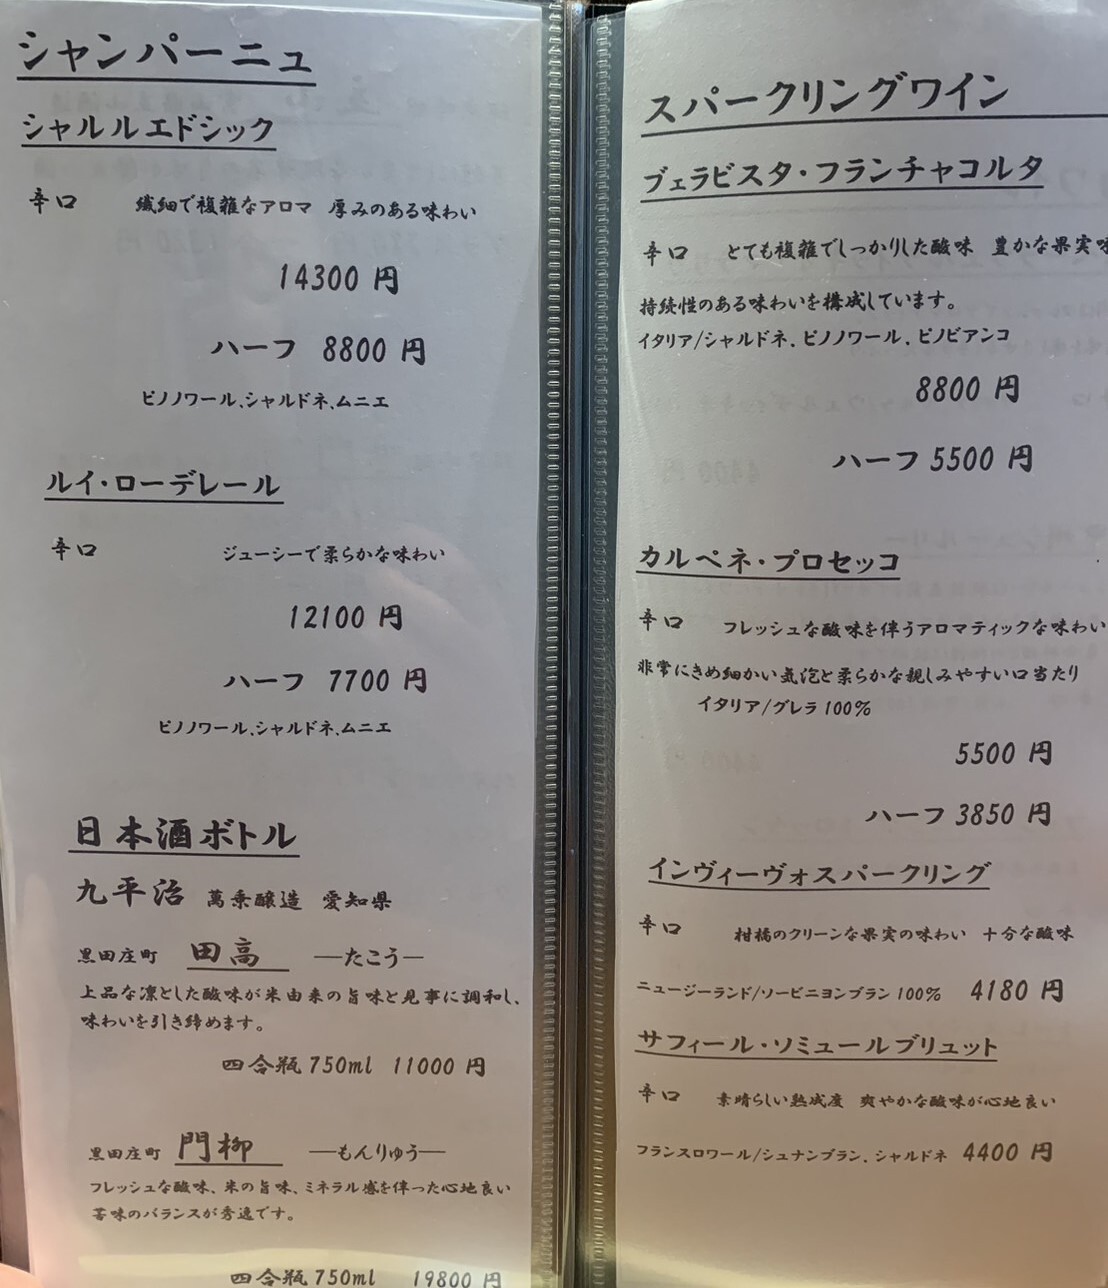 シャンパーニュ
シャルルエドシック
辛口　繊細で複雑なアロマ　厚みのある味わい
14300 円
ハーフ 8800 円
ピノノワール、シャルドネ、ムニエ
ルイ・ローデレール
辛口　ジューシーで柔らかな味わい
12100 円
ハーフ 7700 円
ピノノワール、シャルドネ、ムニエ
日本酒ボトル
九平治　萬乗醸造　愛知県
黒田庄町　田高　―たこう―
上品な凛とした酸味が米由来の旨味と見事に調和し、
味わいを引き締めます。
四合瓶750ml 11000 円
黒田庄町　門柳　―もんりゅう―
フレッシュな酸味、米の旨味、ミネラル感を伴った心地良い
苦味のバランスが秀逸です。
四合瓶750ml 19800 円
スパークリングワイン
ブェラビスタ・フランチャコルタ
辛口　とても複雑でしっかりした酸味　豊かな果実味
持続性のある味わいを構成しています。
イタリア/シャルドネ、ピノノワール、ピノビアンコ
8800 円
ハーフ 5500 円
カルペネ・プロセッコ
辛口　フレッシュな酸味を伴うアロマティックな味わい
非常にきめ細かい気泡と柔らかな親しみやすい口当たり
イタリア/グレラ100%
5500 円
ハーフ 3850 円
インヴィーヴォスパークリング
辛口　柑橘のクリーンな果実の味わい　十分な酸味
ニュージーランド/ソービニヨンブラン100%　4180 円
サフィール・ソミュールブリュット
辛口　素晴らしい熟成度　爽やかな酸味が心地良い
フランスロワール/シュナンブラン、シャルドネ　4400 円